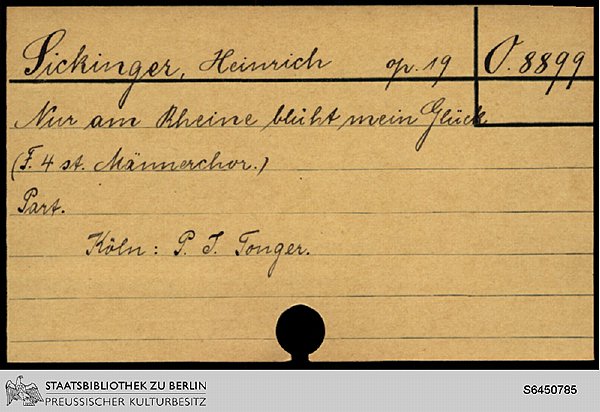 Sickinger, Heinrich op. 19 O. 8899
Nur am Rheine blüht mein Glück
(F. 4 st. Männerchor.)
Part.
Köln: P. J. Tonger.
STAATSBIBLIOTHEK ZU BERLIN
PREUSSISCHER KULTURBESITZ
S6450785